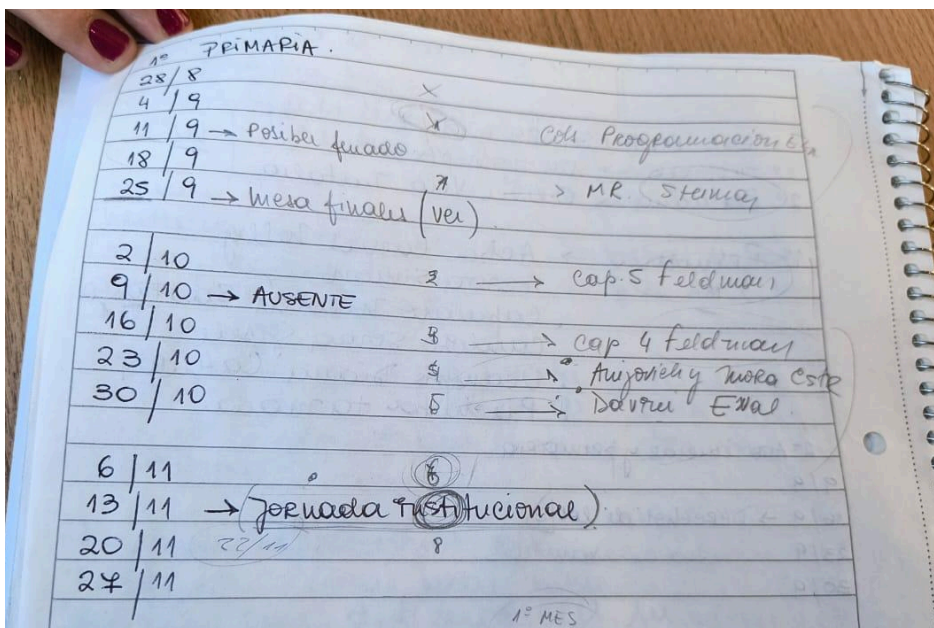 1º PRIMARIA.
28/8 x
4/9 x
11/9 → Posiber feriado Cols Programación
18/9
25/9 → mesa finales (ver) 1 → MR.
2/10 2 → Cap. 5 Feldman
9/10 → AUSENTE
16/10 3 → Cap 4 Feldman
23/10 4 → Anijovich y Mora
30/10 5 → Davini Eval.
6/11 6
13/11 → (Jornada institucional)
20/11 22/11 8
27/11
1º MES